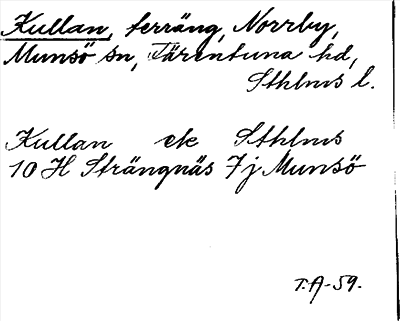 Kullan, terräng, Norrby,
Munsö sn, Färentuna hd,
Sthlms l.
Kullan ek Sthlms
10 H Strängnäs 7j Munsö
T.A-59.